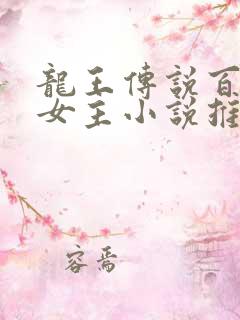 龍王傳說百
女主小說推
容焉